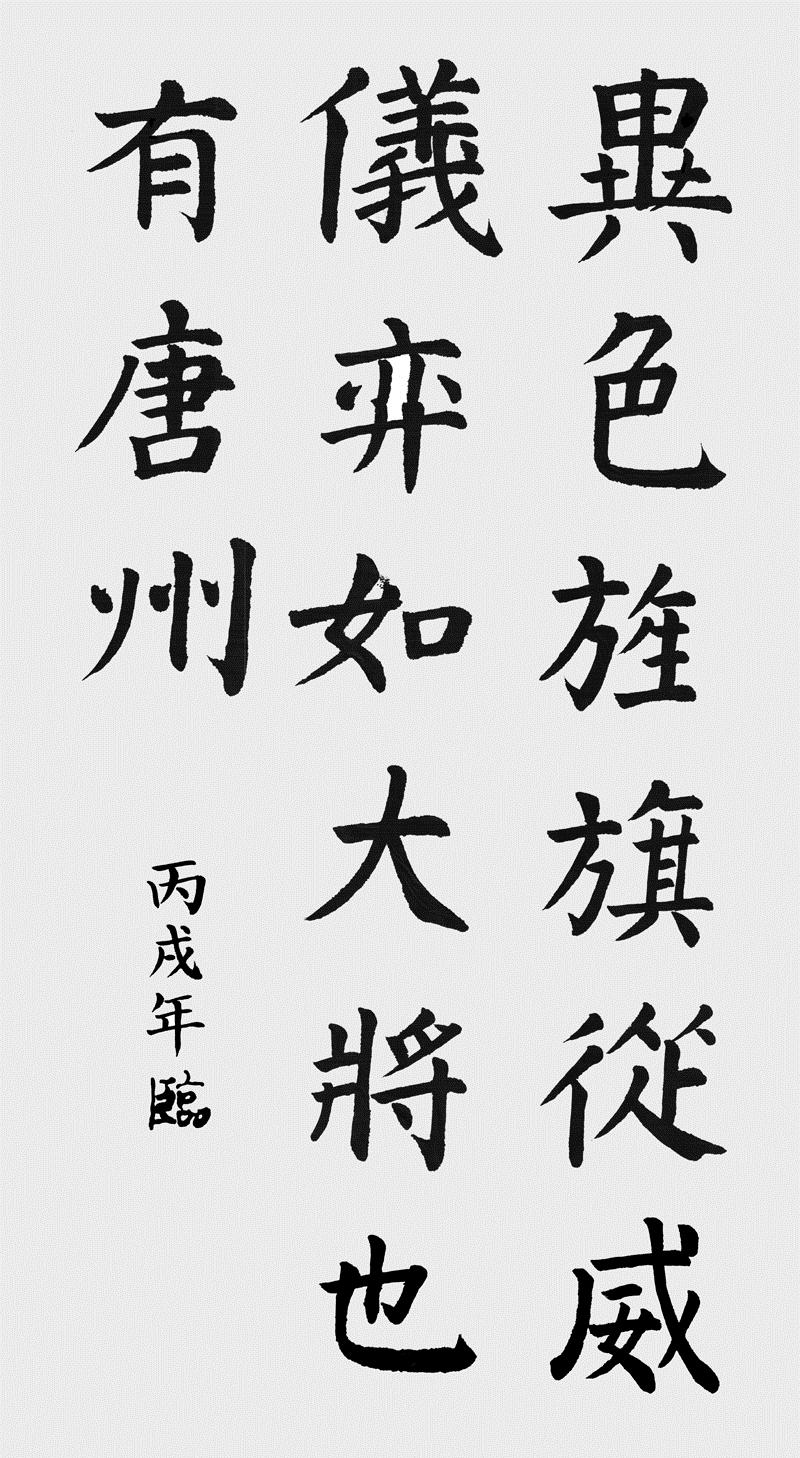 異色旌旗從威
儀弈如大將也
有唐州
丙戌年臨